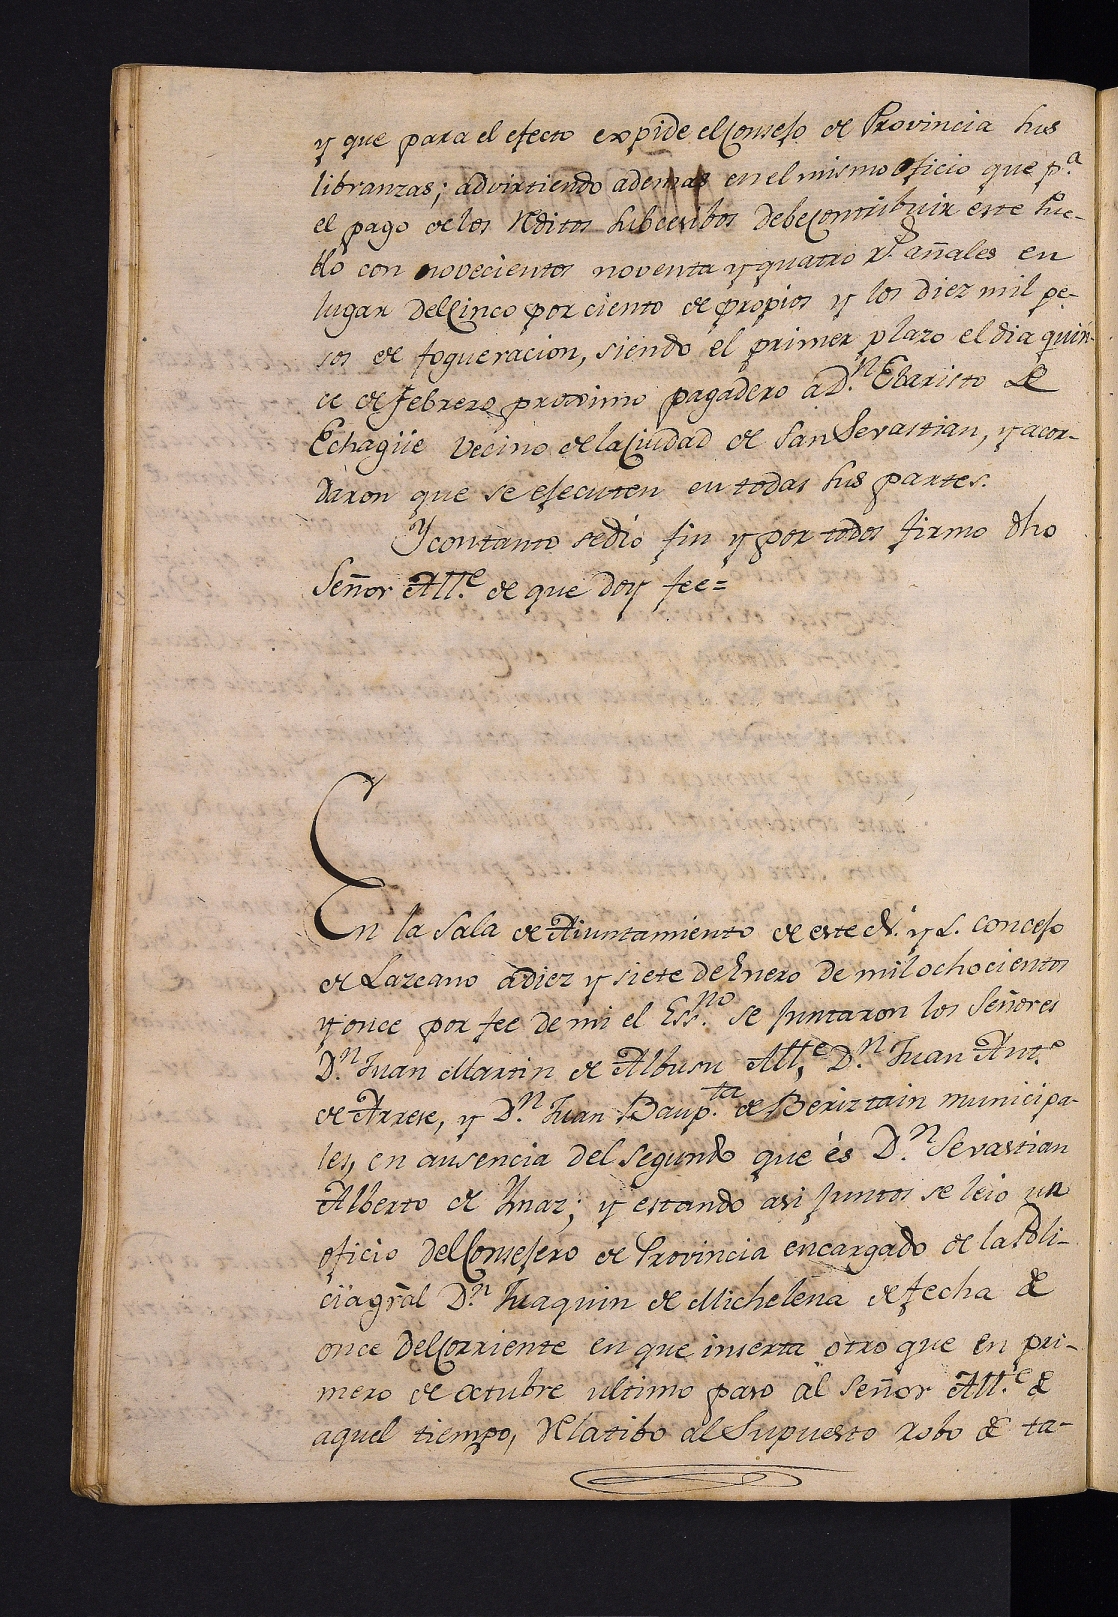 y que para el efecto expide el Consejo de Provincia sus
libranzas; advirtiendo ademas en el mismo oficio que p.ª
el pago de los Reditos subcesibos debe Contribuir este Pue-
blo con novecientos noventa y quatro r.s añales en
lugar del Cinco por ciento de propios y los diez mil pe-
sos de fogueracion, siendo el primer plazo el dia quin-
ce de febrero proximo pagadero a D.n Ebaristo de
Echagüe Vecino de la Ciudad de San Sevastian, y acor-
daron que se ejecuten en todas sus partes.
Y con tanto se dio fin y por todos firmo dho
Señor All.e de que doy fee=
En la Sala de Aiuntamiento de este N. y L. concejo
de Lazcano à diez y siete de Enero de mil ochocientos
y once por fee de mi el Ess.no se juntaron los Señores
D.n Juan Martin de Albusu All.e, D.n Juan Ant.o
de Arrese, y D.n Juan Baup.ta de Beriztain municipa-
les, en ausencia del segundo que és D.n Sevastian
Alberto de Ymaz; y estando asi juntos se leio un
oficio del Consejero de Provincia encargado de la Poli-
cia gral D.n Juaquin de Michelena de fecha de
once del Corriente en que inserta otro que en pri-
mero de octubre ultimo paso al Señor All.e de
aquel tiempo, Relatibo al Supuesto robo de ta-